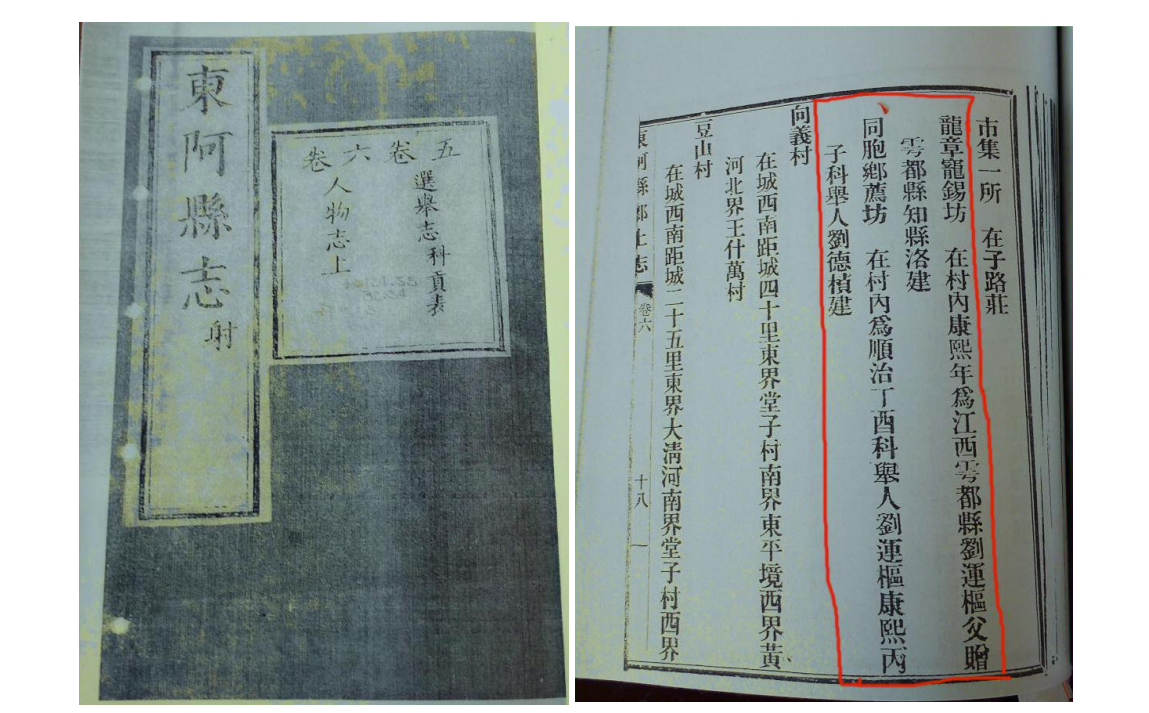 東阿縣志
射
五卷六卷
選舉志科貢表
人物志上
市集一所 在子路莊
龍章寵錫坊 在村內康熙年為江西雩都縣劉運樞父贈
雩都縣知縣洛建
同胞鄉薦坊 在村內為順治丁酉科舉人劉運樞康熙丙
子科舉人劉德楨建
向義村
在城西南距城四十里東界堂子村南界東平境西界黃
河北界王什萬村
豆山村
在城西南距城二十五里東界大清河南界堂子村西界
東阿縣鄉土志 卷六 十八